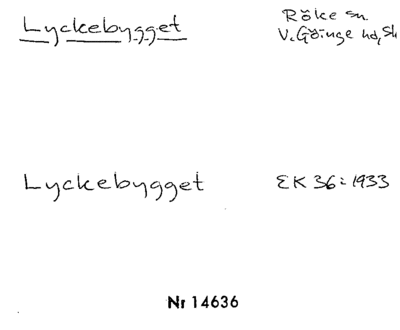 Lyckebygget
Röke sn
V. Göinge hd, Sk
Lyckebygget
EK 36: 1933
Nr 14636